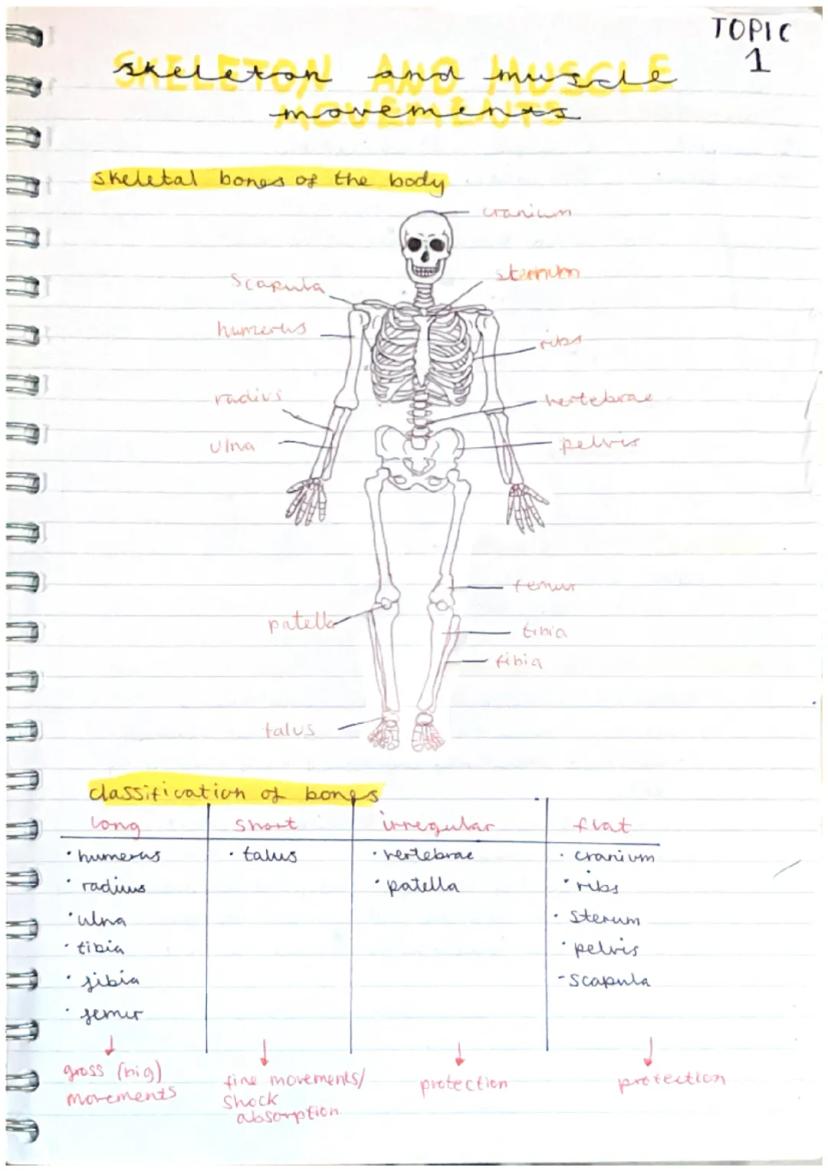 TOPIC
1
SKELETON AND MUSCLE
skeleton and muscle
MOVEMENTS
movements
skeletal bones of the body
cranium
scapula
sternum
humerus
ribs
radius
vertebrae
ulna
pelvis
femur
patella
tibia
fibia
talus
classification of bones
long short irregular flat
· humerus · talus · vertebrae · cranium
· radius · patella · ribs
· ulna · sterum
· tibia · pelvis
· fibia - scapula
· femur
gross (big) fine movements/ protection protection
movements shock
absorption